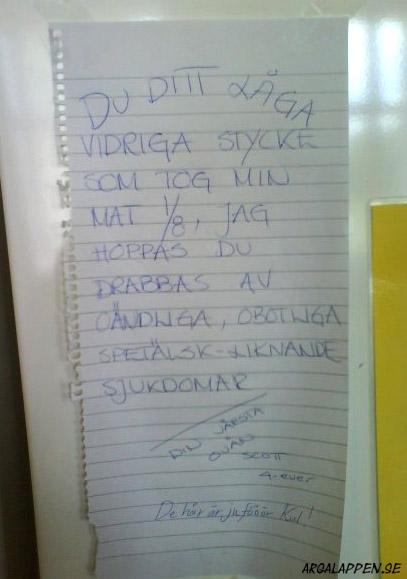 DU DITT LÅGA
VIDRIGA STYCKE
SOM TOG MIN
MAT 1/8, JAG
HOPPAS DU
DRABBAS AV
OÄNDLIGA, OBOTLIGA
SPETÄLSK-LIKNANDE
SJUKDOMAR
DIN VÄRSTA
OVÄN
SCOTT
4-ever
De här är ju fööör kul!
ARGALAPPEN.SE